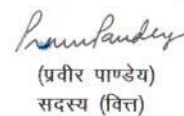 (प्रवीर पाण्डेय)
सदस्य (वित्त)